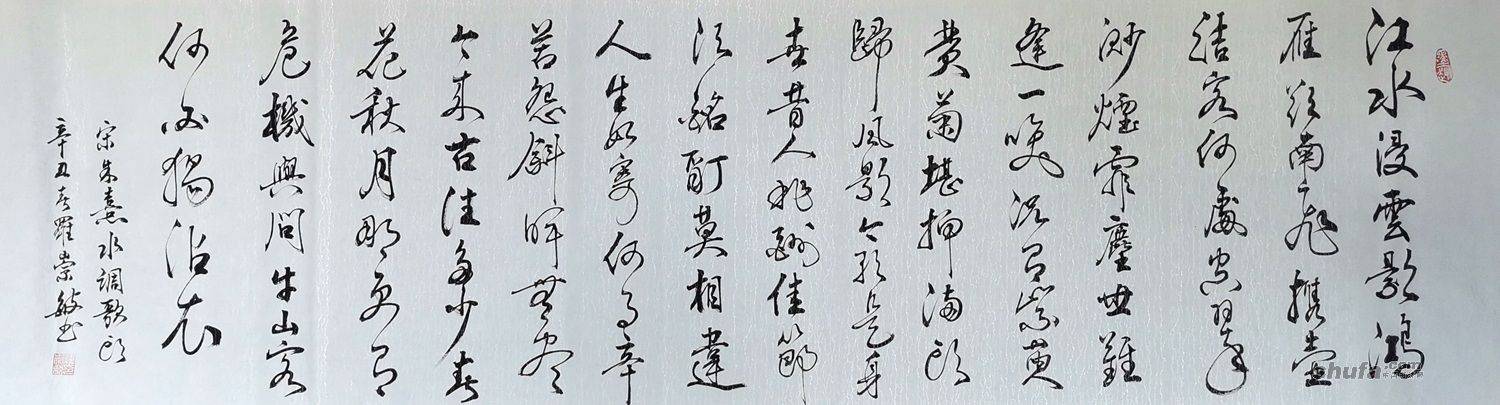 江水浸雲影鴻
雁欲南飛携壺
結客何處空翠
渺煙霏塵世難
逢一笑況有紫萸
黄菊堪插滿頭
歸風影今朝是身
世昔人非酬佳節
須酩酊莫相違
人生如寄何事辛
苦怨斜暉無盡
今來古往多少春
花秋月那更有
危機與問牛山客
何必獨沾衣
宋朱熹水調歌頭
辛丑春羅崇敏書
shufa